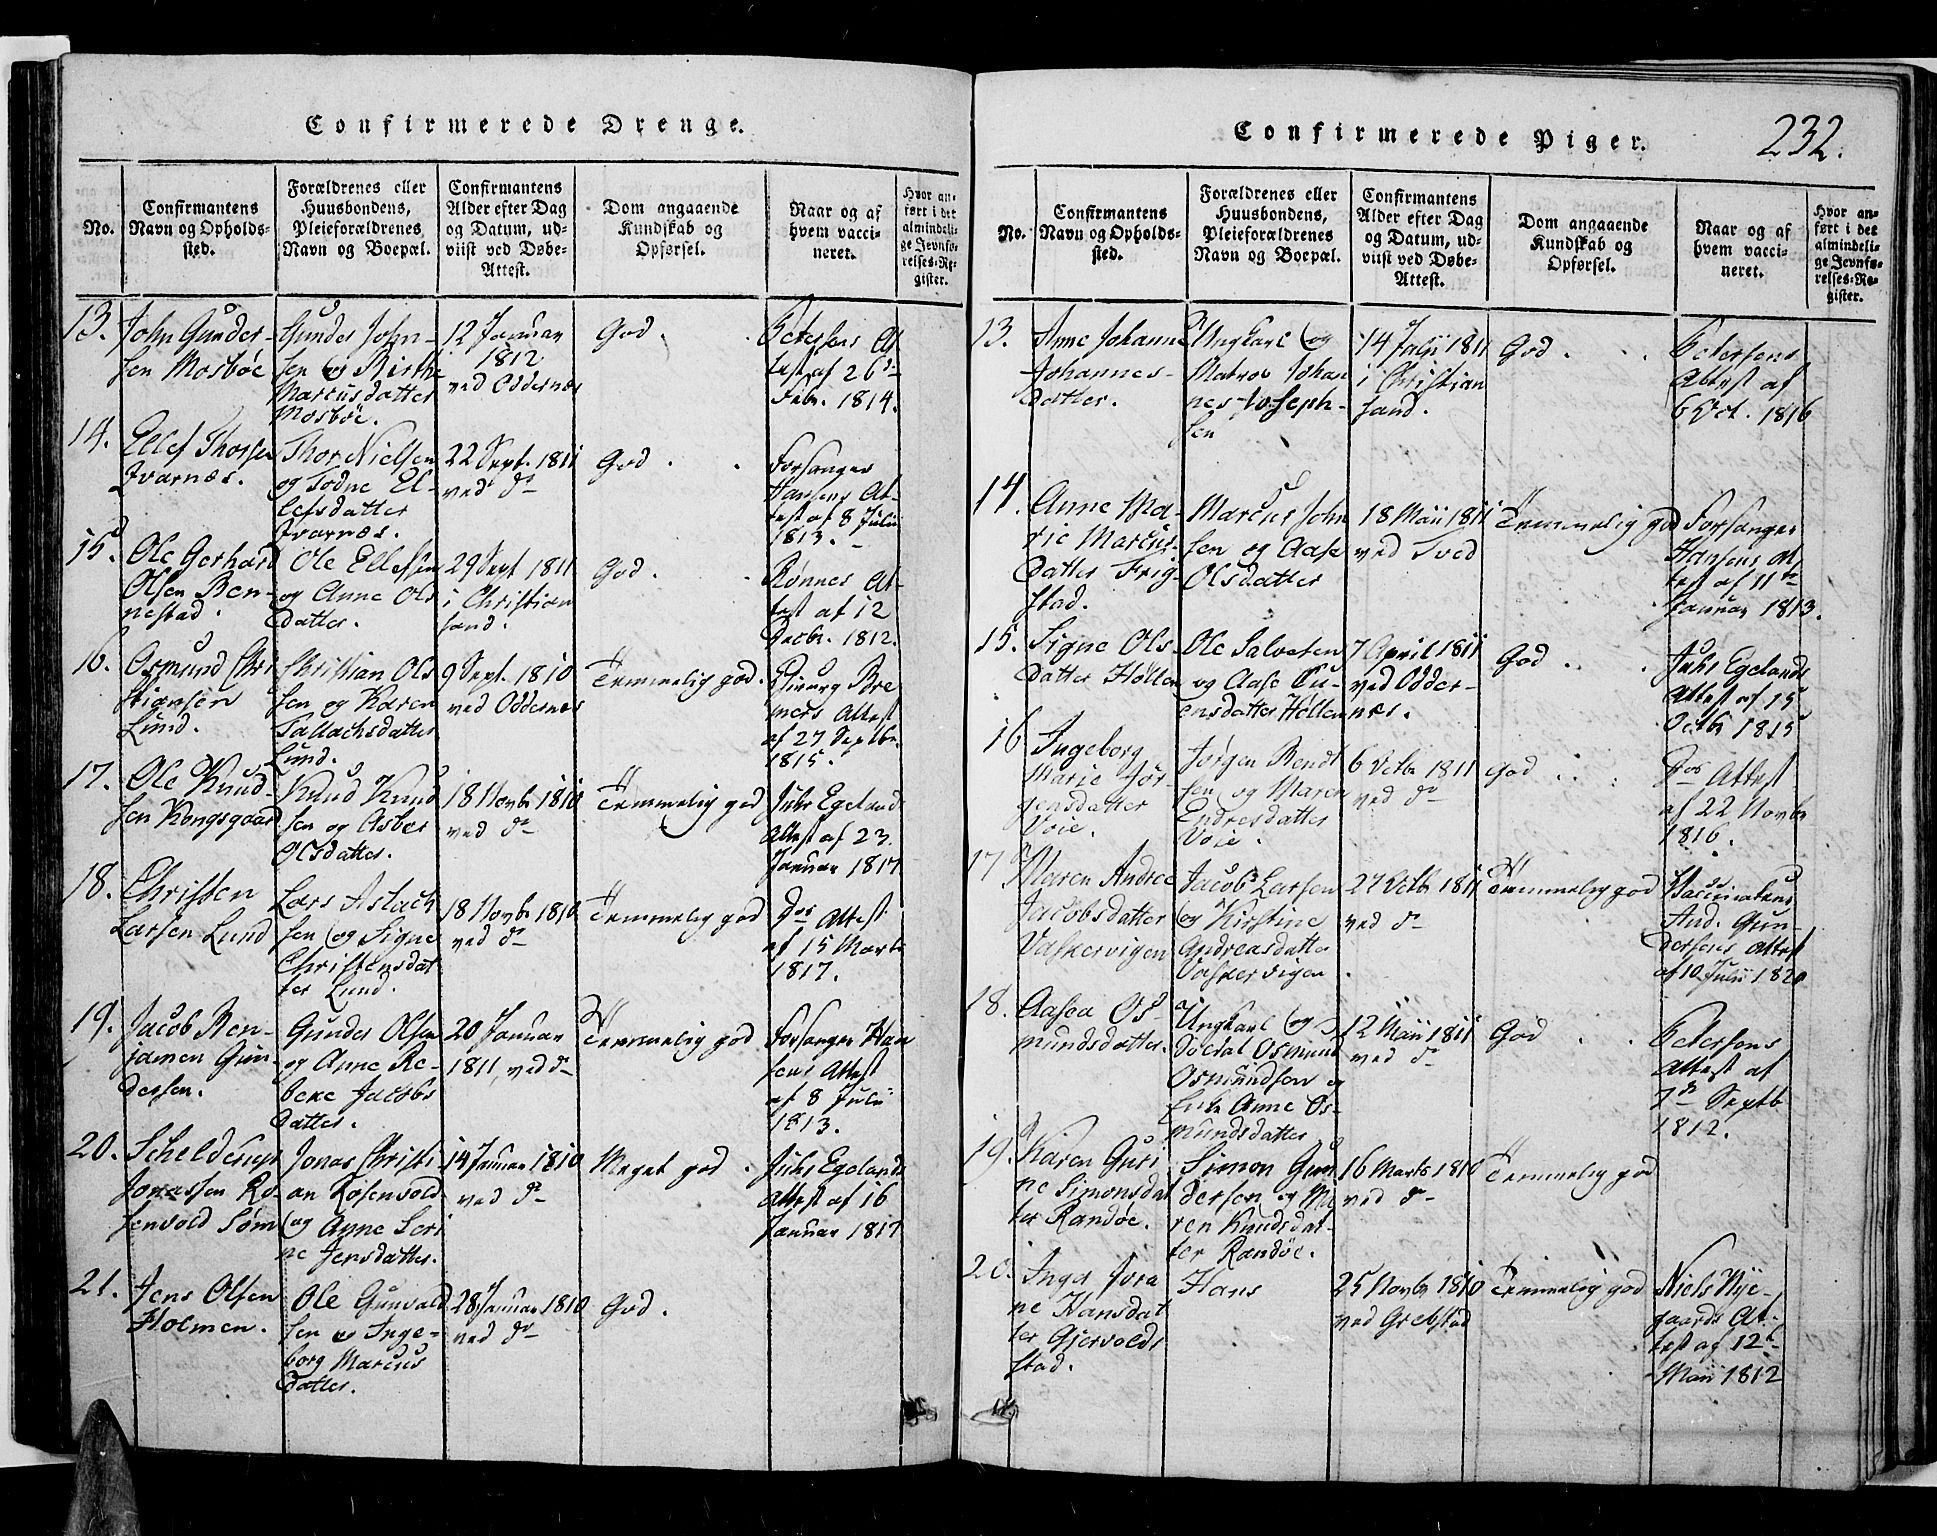 Confirmerede Drenge.
No.
Confirmantens
Navn og Opholds-
sted.
Forældrenes eller
Huusbondens,
Pleieforældrenes
Navn og Boepæl.
Confirmantens
Alder efter Dag
og Datum, ud-
viist ved Døbe-
Attest.
Dom angaaende
Kundskab og
Opførsel.
Naar og af
hvem vacci-
neret.
Hvor an-
ført i det
almindeli-
ge Jevnfø-
relses-Re-
gister.
13.
John Gunder-
sen Mosbøe
Gunder John-
sen og Birthe
Marcusdatter
Mosbøe.
12 Januar
1812
ved Oddernæs
God.
Petersens At
test af 26de
Febr. 1814.
14.
Ellef Thorsen
Ivarnæs.
Thor Nielsen
og Todne El-
lefsdatter
Ivarnæs.
22 Sept. 1811
ved do
God
Forsanger
Hansens At-
test af 8 Julii
1813.
15.
Ole Gerhard
Olsen Ben-
nestad.
Ole Ellefsen
og Anne Ols
datter.
29 Sept 1811
i Christian
sand.
God.
Rønnes At-
test af 12
Decbr. 1812.
16.
Osmund Chri
stiansen
Lund.
Christian Ols
sen og Karen
Tallachsdatter
Lund.
9 Sept. 1810
ved Oddernæs
Temmelig god.
Chirurg Bre
mers Attest
af 27 Septbr.
1815.
17.
Ole Knud-
sen Kongsgaard
Knud Knud
sen og Asber
Olsdatter.
18 Novbr 1810
ved do
Temmelig god
Juhs Egelands
Attest af 23
Januar 1817
18.
Christen
Larsen Lund
Lars Aslach
sen og Signe
Christensdat
ter Lund.
18 Novbr 1810
ved do
Temmelig god
Dos Attest
af 15 Marts
1817.
19.
Jacob Ben-
jamen Gun-
dersen.
Gunder Olsen
og Anne Re-
beke Jacobs
datter.
20 Januar
1811, ved do
Temmelig god
Forsanger Han
sens Attest
af 8 Julii
1813.
20.
Schelderup
Jonassen Ro
senvold Søm
Jonas Christi
an Rosenvold
og Anne Seri
ne Jensdatter.
14 Januar 1810
ved do
Meget god.
Juhs Egelands
Attest af 16
Januar 1817
21.
Jens Olsen
Holmen.
Ole Gunvald
sen og Inge-
borg Marcus
datter.
28 Januar 1810
ved do
God.
Confirmerede Piger.
232.
No.
Confirmantens
Navn og Opholds-
sted.
Forældrenes eller
Huusbondens,
Pleieforældrenes
Navn og Boepæl.
Confirmantens
Alder efter Dag
og Datum, ud-
viist ved Døbe-
Attest.
Dom angaaende
Kundskab og
Opførsel.
Naar og af
hvem vacci-
neret.
Hvor an-
ført i det
almindeli-
ge Jevnfø-
relses-Re-
gister.
13.
Anne Johanne
Johannes-
datter.
Ungkarl og
Matros Johan
nes Joseph-
sen
14 Julii 1811
i Christian
sand.
God
Petersens
Attest af
6 Oct. 1816
14.
Anne Ma-
rie Marcus-
datter Frig-
stad.
Marcus John
sen og Aase
Olsdatter
18 Maii 1811
ved Tved
Temmelig god
Forsanger
Hansens At
test af 11te
Januar 1813.
15.
Signe Ols
datter Hollen
Ole Salvesen
og Aase Eu-
ensdatter Hollen
7 April 1811
ved Odder-
næs.
God
Juhs Egelands
Attest af 15
Octbr 1815
16
Ingeborg
Marie Jør
gensdatter
Voie.
Jørgen Bendt
sen og Maren
Endresdatter
Voie.
6 Octbr 1811
ved do
God
Dos Attest
af 22 Novbr
1816.
17
Maren Andrea
Jacobsdatter
Valkervigen
Jacob Larsen
og Kirstine
Andreasdatter
Valkervigen
27 Octbr 1811
ved do
Temmelig god
Vaccinateur
And. Gun-
dersens Attest
af 10 Julii 1820
18.
Aasea Os
mundsdatter.
Ungkarl og
Soldat Osmund
Osmundsen og
Enke Anne Os-
mundsdatter
12 Maii 1811
ved do
God
Petersens
Attest af
7de Septb
1812.
19.
Karen Guri
ne Simonsdat
ter Randøe.
Simon Gun
dersen og Ma
ren Knudsdat-
ter Randøe.
16 Marts 1810
ved do
Temmelig god
20.
Inger Jora
ne Hansdat
ter Gjervolds
stad.
Hans
25 Novbr 1810
ved Grebstad
Temmelig god
Niels Nye-
gaards At-
test af 12te
Maii 1812